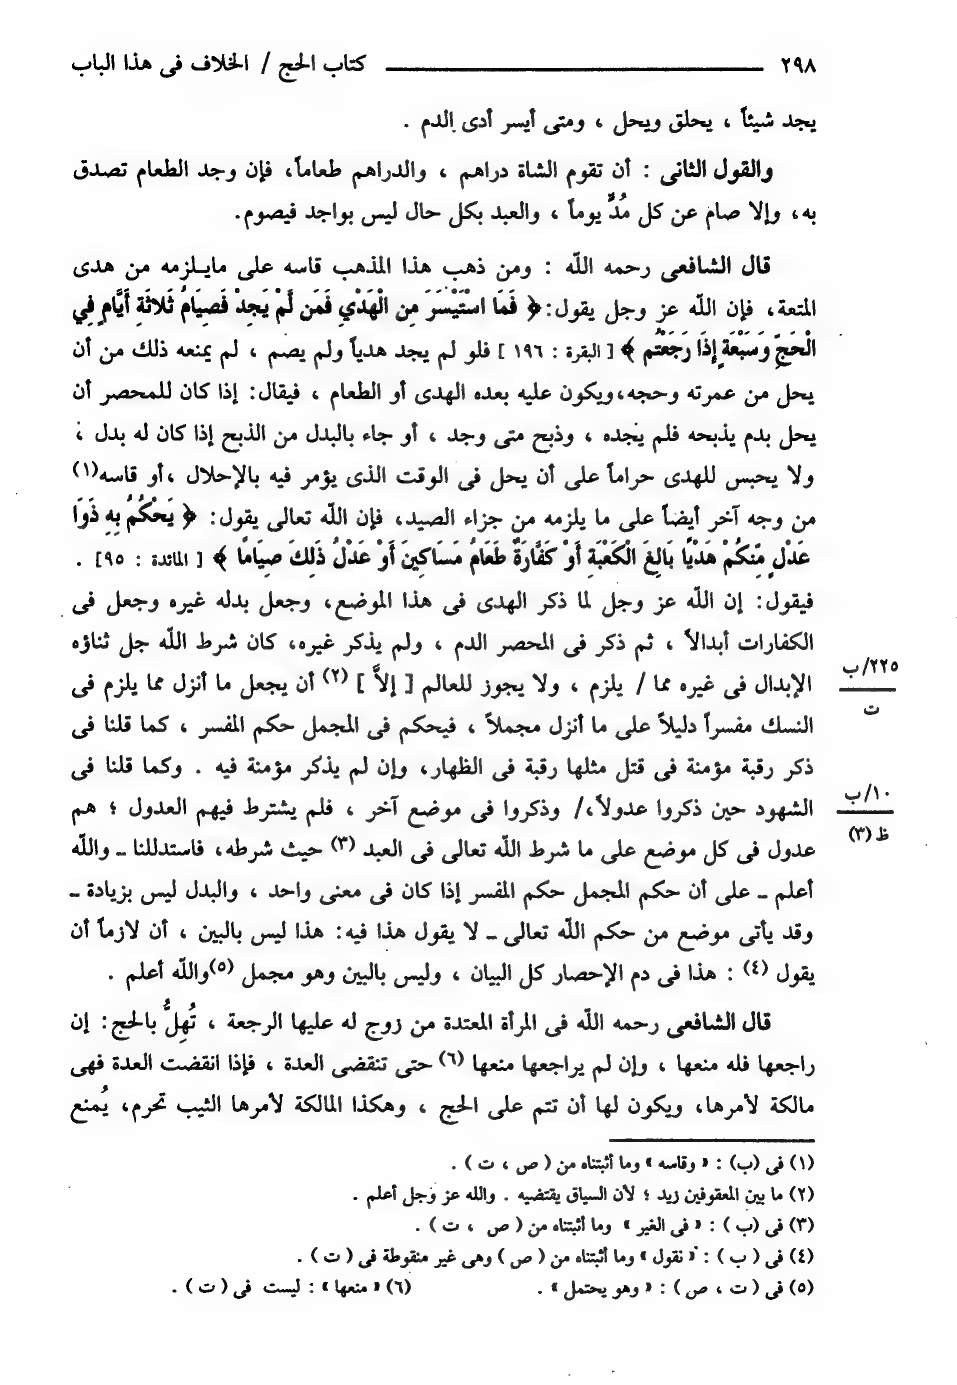 ٢٩٨ ــــــــــــــــــــــ كتاب الحج / الخلاف فى هذا الباب
يجد شيئاً ، يحلق ويحل ، ومتى أيسر أدى الدم .
والقول الثانى : أن تقوم الشاة دراهم ، والدراهم طعاماً، فإن وجد الطعام تصدق
به، وإلا صام عن كل مُدٍّ يوماً ، والعبد بكل حال ليس بواجد فيصوم.
قال الشافعى رحمه الله : ومن ذهب هذا المذهب قاسه على مايلزمه من هدى
المتعة، فإن الله عز وجل يقول:﴿ فَمَا اسْتَيْسَرَ مِنَ الْهَدْيِ فَمَن لَّمْ يَجِدْ فَصِيَامُ ثَلاثَةِ أَيَّامٍ فِي
الْحَجِّ وَسَبْعَةٍ إِذَا رَجَعْتُم ﴾ [ البقرة : ١٩٦ ] فلو لم يجد هدياً ولم يصم ، لم يمنعه ذلك من أن
يحل من عمرته وحجه،ويكون عليه بعده الهدى أو الطعام ، فيقال: إذا كان للمحصر أن
يحل بدم يذبحه فلم يجده ، وذبح متى وجد ، أو جاء بالبدل من الذبح إذا كان له بدل ،
ولا يحبس للهدى حراماً على أن يحل فى الوقت الذى يؤمر فيه بالإحلال ،أو قاسه(١)
من وجه آخر أيضاً على ما يلزمه من جزاء الصيد، فإن الله تعالى يقول: ﴿ يَحْكُمُ بِهِ ذَوَا
عَدْلٍ مِّنكُمْ هَدْيًا بَالِغَ الْكَعْبَةِ أَوْ كَفَّارَةٌ طَعَامُ مَسَاكِينَ أَوْ عَدْلُ ذَلِكَ صِيَامًا ﴾ [ المائدة : ٩٥] .
فيقول: إن الله عز وجل لما ذكر الهدى فى هذا الموضع، وجعل بدله غيره وجعل فى
الكفارات أبدالاً ، ثم ذكر فى المحصر الدم ، ولم يذكر غيره، كان شرط الله جل ثناؤه
الإبدال فى غيره مما / يلزم ، ولا يجوز للعالم [ إلاَّ ] (٢) أن يجعل ما أنزل مما يلزم فى
٢٢٥/ب
ت
النسك مفسراً دليلاً على ما أنزل مجملاً ، فيحكم فى المجمل حكم المفسر ، كما قلنا فى
ذكر رقبة مؤمنة فى قتل مثلها رقبة فى الظهار، وإن لم يذكر مؤمنة فيه . وكما قلنا فى
الشهود حين ذكروا عدولاً،/ وذكروا فى موضع آخر ، فلم يشترط فيهم العدول ؛ هم
١٠/ب
ظ (٣)
عدول فى كل موضع على ما شرط الله تعالى فى العبد (٣) حيث شرطه، فاستدللنا ـ والله
أعلم ـ على أن حكم المجمل حكم المفسر إذا كان فى معنى واحد ، والبدل ليس بزيادة ـ
وقد يأتى موضع من حكم الله تعالى ـ لا يقول هذا فيه: هذا ليس بالبين ، أن لازماً أن
يقول (٤) : هذا فى دم الإحصار كل البيان ، وليس بالبين وهو مجمل (٥)والله أعلم .
قال الشافعى رحمه الله فى المرأة المعتدة من زوج له عليها الرجعة ، تُهِلُّ بالحج: إن
راجعها فله منعها ، وإن لم يراجعها منعها (٦) حتى تنقضى العدة ، فإذا انقضت العدة فهى
مالكة لأمرها، ويكون لها أن تتم على الحج ، وهكذا المالكة لأمرها الثيب تحرم، يُمنع
(١) فى (ب) : « وقاسه » وما أثبتناه من ( ص ، ت ) .
(٢) ما بين المعقوفين زيد ؛ لأن السياق يقتضيه . والله عز وجل أعلم .
(٣) فى (ب ) : « فى الغير » وما أثبتناه من ( ص ، ت ) .
(٤) فى ( ب ) : « نقول » وما أثبتناه من ( ص ) وهى غير منقوطة فى ( ت ) .
(٥) فى ( ت ، ص ) : « وهو يحتمل » . (٦) « منعها » : ليست فى ( ت ) .